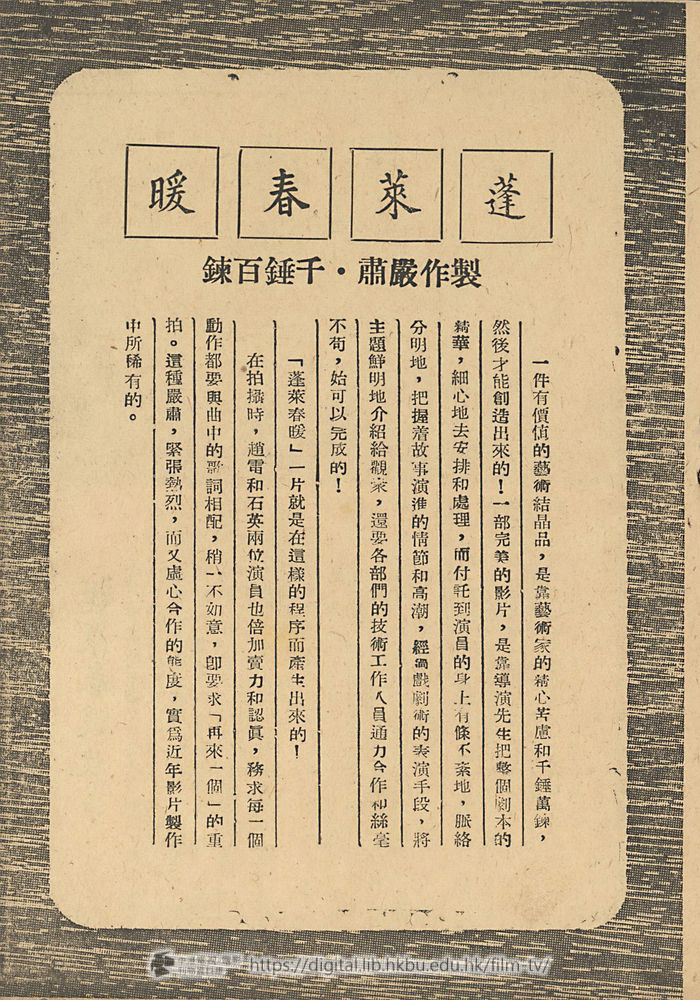 蓬萊春暖
製作嚴肅・千錘百鍊
一件有價值的藝術結晶品，是靠藝術家的精心苦慮和千錘萬鍊，
然後才能創造出來的！一部完美的影片，是靠導演先生把整個劇本的
精華，細心地去安排和處理，而付託到演員的身上有條不紊地，脈絡
分明地，把握着故事演進的情節和高潮，經過戲劇術的表演手段，將
主題鮮明地介紹給觀衆，還要各部們的技術工作人員通力合作和絲毫
不苟，始可以完成的！
「蓬萊春暖」一片就是在這樣的程序而產生出來的！
在拍攝時，趙電和石英兩位演員也倍加賣力和認眞，務求每一個
動作都要與曲中的歌詞相配，稍一不如意，卽要求「再來一個」的重
拍。這種嚴肅，緊張熱烈，而又虛心合作的態度，實爲近年影片製作
中所稀有的。
https://digital.lib.hkbu.edu.hk/film-tv/